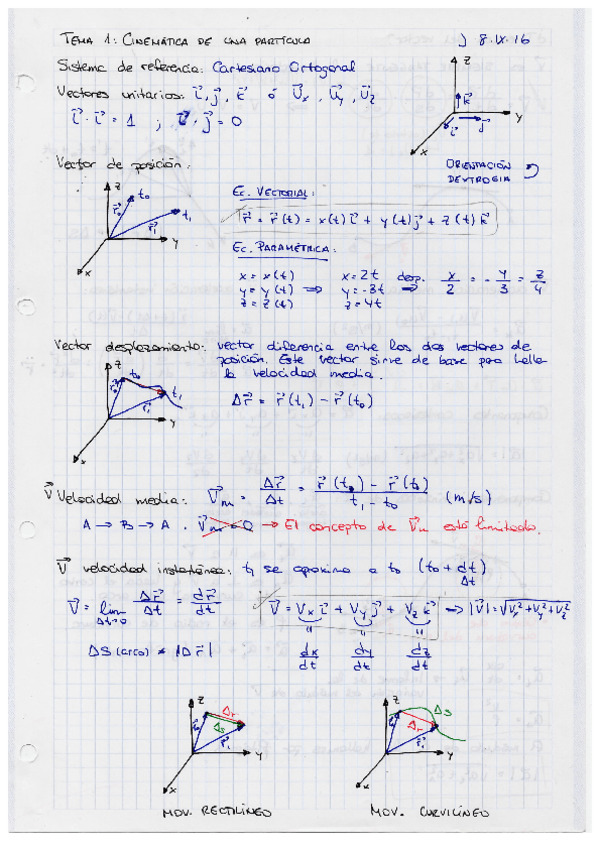 TEMA 1: CINEMÁTICA DE UNA PARTÍCULA
J 8.IX.16
Sistema de referencia: Cartesiano Ortogonal
Vectores unitarios: i⃗, j⃗, k⃗ ó U⃗x, U⃗y, U⃗z
i⃗ · i⃗ = 1 ; i⃗ · j⃗ = 0
z
k⃗
y
i⃗
j⃗
x
ORIENTACIÓN
DEXTROGIA
Vector de posición:
z
t₀
r⃗₀
t₁
r⃗₁
y
x
EC. VECTORIAL:
r⃗ = r⃗(t) = x(t) i⃗ + y(t) j⃗ + z(t) k⃗
EC. PARAMÉTRICA:
x = x(t) x = 2t desp. x/2 = - y/3 = z/4
y = y(t) ⇒ y = -3t ⇒
z = z(t) z = 4t
Vector desplazamiento: vector diferencia entre los dos vectores de
posición. Este vector sirve de base para halla
la velocidad media.
z
t₀
r⃗₀
t₁
r⃗₁
y
x
Δr⃗ = r⃗(t₁) - r⃗(t₀)
V⃗ Velocidad media: V⃗m = Δr⃗/Δt = r⃗(t₀) - r⃗(t₀)/t₁ - t₀ (m/s)
A → B → A . V⃗m = 0 → El concepto de Vm está limitado.
V⃗ velocidad instantánea: t₁ se aproxima a t₀ (t₀ + dt)
Δt
V⃗ = lim Δt→0 Δr⃗/Δt = dr⃗/dt
V⃗ = Vx i⃗ + Vy j⃗ + Vz k⃗ → |V⃗| = √Vx² + Vy² + Vz²
= = =
ΔS (arco) ≠ |Δr⃗|
dx/dt dy/dt dz/dt
z
Δr
Δs
r⃗₁
y
x
MOV. RECTILÍNEO
z
Δs
Δr
r⃗₁
y
x
MOV. CURVILÍNEO